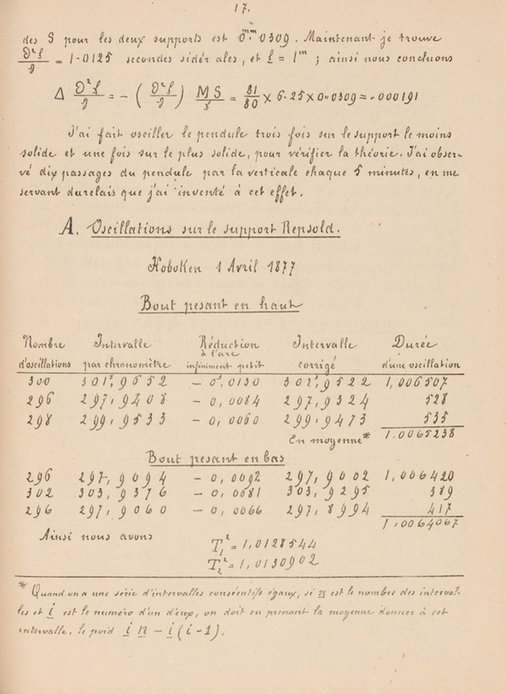 17.
des S pour les deux supports est 0.mm0309. Maintenant je trouve
∂²l/g = 1.0125 secondes sidérales, et l = 1m ; ainsi nous concluons
Δ ∂²l/g = - (∂²l/g) MS/l = 81/80 × 6.25 × 0.0309 = .000191
J'ai fait osciller le pendule trois fois sur le support le moins
solide et une fois sur le plus solide, pour vérifier la théorie. J'ai obser-
vé dix passages du pendule par la verticale chaque 5 minutes, en me
servant du relais que j'ai inventé à cet effet.
A. Oscillations sur le support Repsold.
Hoboken 1 Avril 1877
Bout pesant en haut
Nombre Intervalle Réduction Intervalle Durée
d'oscillations par chronomètre à l'arc infiniment petit corrigé d'une oscillation
300 301s,9652 - 0s,0130 301s,9522 1,006507
296 297,9408 - 0,0084 297,9324 528
298 299,9533 - 0,0060 299,9473 535
En moyenne* 1.0065238
Bout pesant en bas
296 297,9094 - 0,0092 297,9002 1,006420
302 303,9376 - 0,0081 303,9295 389
296 297,9060 - 0,0066 297,8994 417
1,0064067
Ainsi nous avons T₁² = 1,0128544
T₂² = 1,0130902
* Quand on a une série d'intervalles consécutifs égaux, si n est le nombre des interval-
les et i est le numéro d'un d'eux, on doit en prenant la moyenne donner à cet
intervalle, le poid i n - i (i-1).